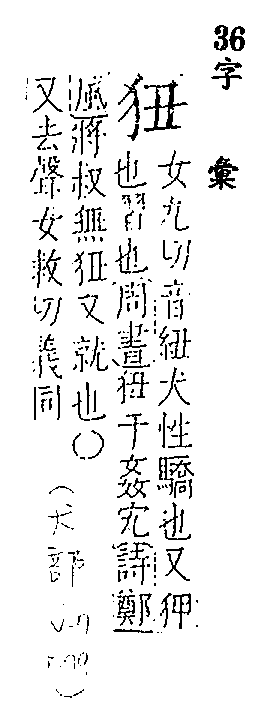 36
字彙
狃
女九切音紐犬性驕也又狎
也習也周書狃于姦宄詩鄭
風將叔無狃又就也〇
又去聲女救切義同
（犬部